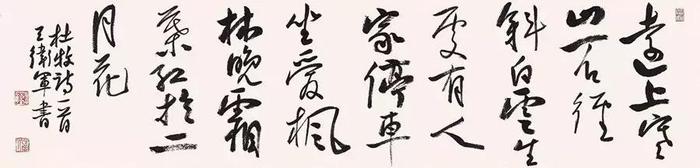 遠上寒
山石徑
斜白雲生
處有人
家停車
坐愛楓
林晚霜
葉紅於二
月花
杜牧詩一首
王衛軍書